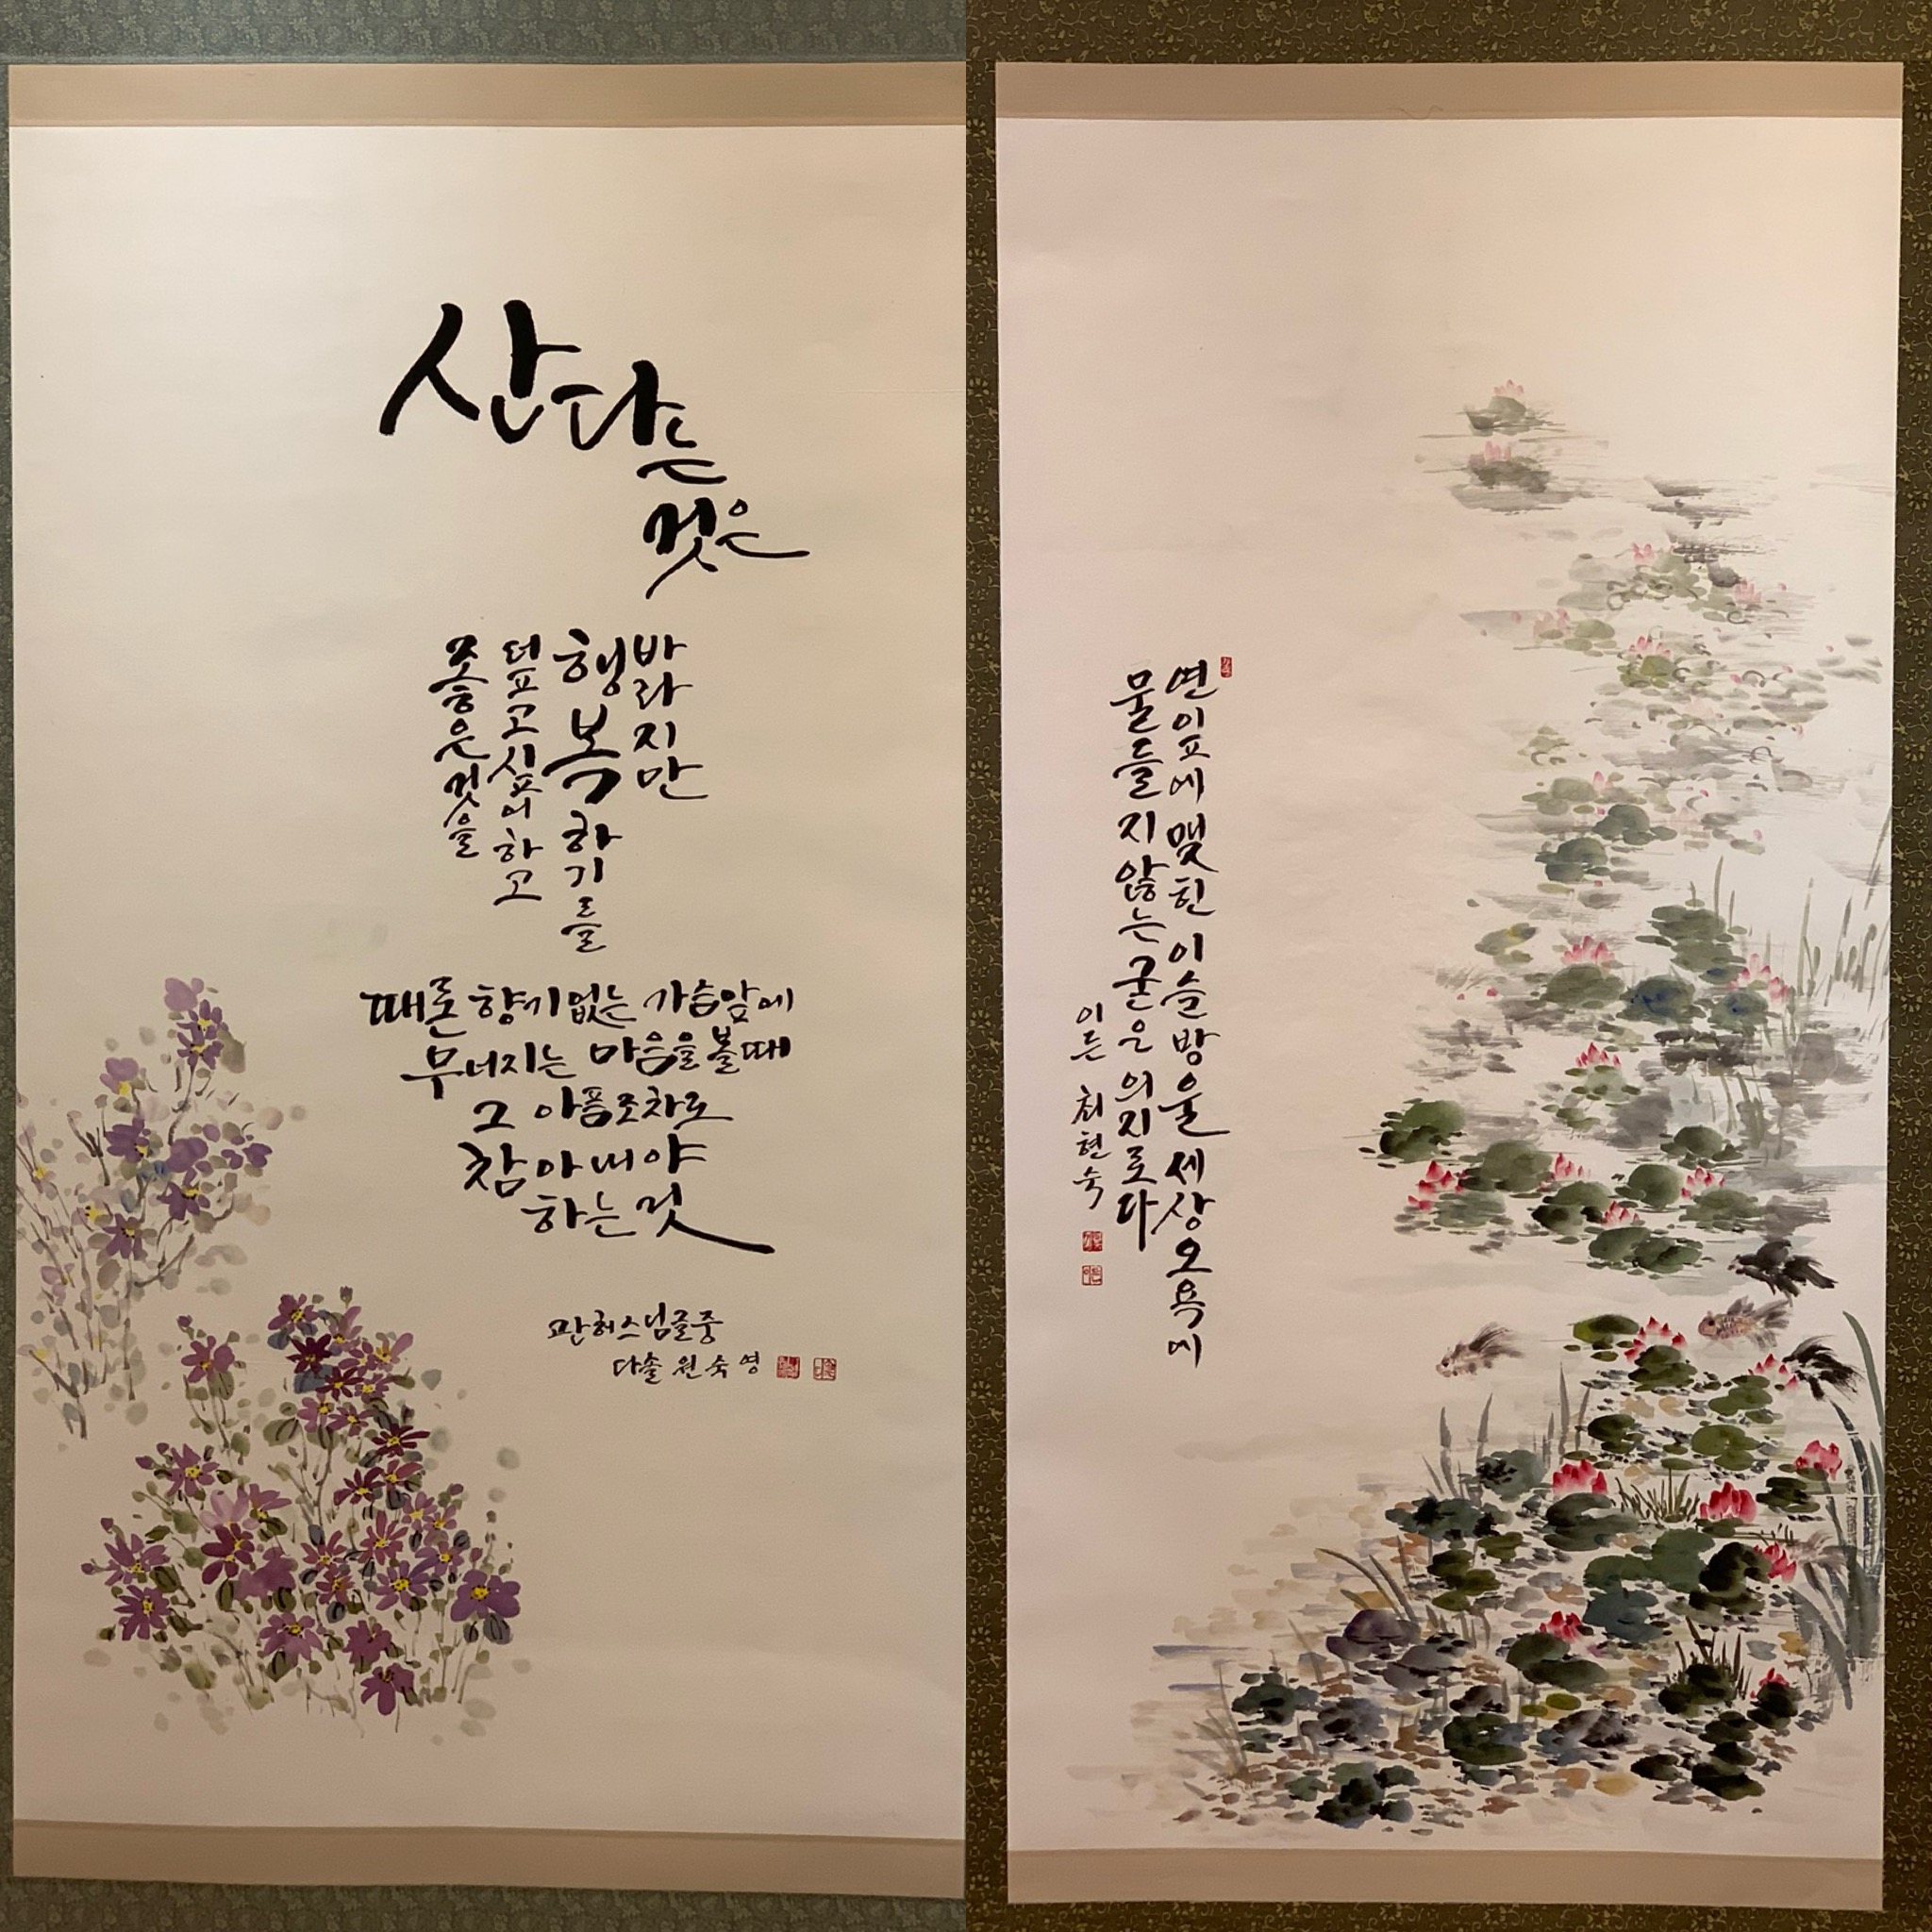 산다는
것은
좋은것을
덮고싶어하고
행복하기를
바라지만
때론 향기없는 가슴앞에
무너지는 마음을 볼때
그 아픔조차로
참아내야
하는것
관허스님글중
다솔 원숙영
연잎에맺힌이슬방울세상오욕에
물들지않는굳은의지로다
이든 최현숙